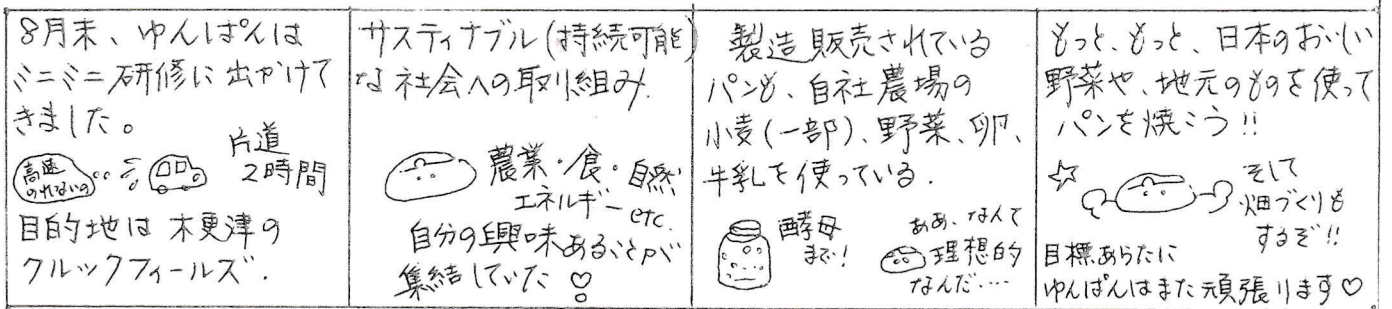 8月末、ゆんぱんは
ミニミニ研修に出かけて
きました。
片道
2時間
高速
のれないの
目的地は木更津の
クルックフィールズ.
サスティナブル(持続可能)
な社会への取り組み.
農業・食・自然
エネルギー etc.
自分の興味あることが
集結していた♡
製造販売されている
パンも、自社農場の
小麦(一部)、野菜、卵、
牛乳を使っている.
酵母
まで!
ああ、なんて
理想的
なんだ....
もっと、もっと、日本のおいしい
野菜や、地元のものを使って
パンを焼こう!!
そして
畑づくりも
するぞ!!
目標あらたに
ゆんぱんはまた頑張ります♡